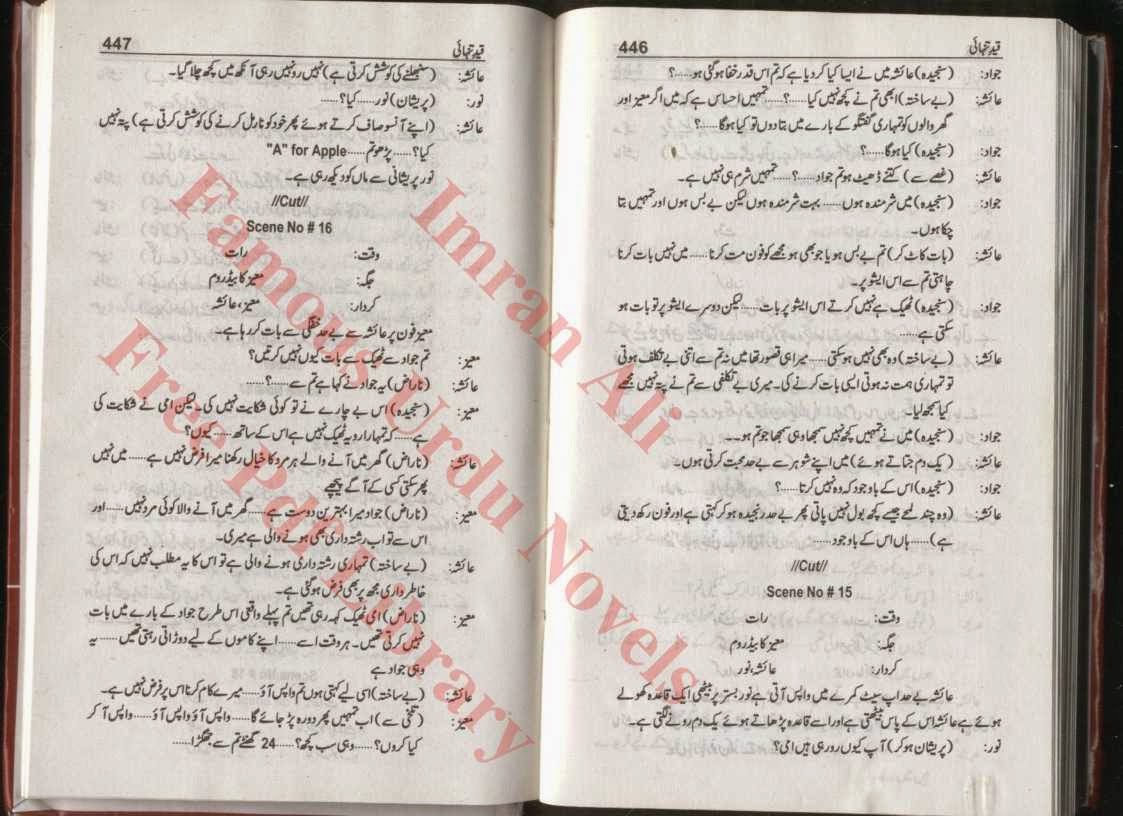 446 قید تنہائی
جواد: (سنجیدہ) عائشہ میں نے ایسا کیا کر دیا ہے کہ تم اس قدر خفا ہو گئی ہو......؟
عائشہ: (بے ساختہ) ابھی تم نے کچھ نہیں کیا......؟...... تمہیں احساس ہے کہ میں اگر معیز اور
گھر والوں کو تمہاری گفتگو کے بارے میں بتا دوں تو کیا ہوگا......؟
جواد: (سنجیدہ) کیا ہوگا......؟
عائشہ: (غصے سے) کتنے ڈھیٹ ہو تم جواد......؟...... تمہیں شرم ہی نہیں ہے۔
جواد: (سنجیدہ) میں شرمندہ ہوں...... بہت شرمندہ ہوں لیکن بے بس ہوں اور تمہیں بتا
چکا ہوں۔
عائشہ: (بات کاٹ کر) تم بے بس ہو یا جو بھی ہو مجھے کو فون مت کرنا...... میں نہیں بات کرنا
چاہتی تم سے اس ایشو پر۔
جواد: (سنجیدہ) ٹھیک ہے نہیں کرتے اس ایشو پر بات...... لیکن دوسرے ایشو پر تو بات ہو
سکتی ہے......
عائشہ: (بے ساختہ) وہ بھی نہیں ہو سکتی...... میرا ہی قصور تھا میں نہ تم سے اتنی بے تکلف ہوتی
تو تمہاری ہمت نہ ہوتی ایسی بات کرنے کی۔ میری بے تکلفی سے تم نے پتہ نہیں مجھے
کیا سمجھ لیا۔
جواد: (سنجیدہ) میں نے تمہیں کچھ نہیں سمجھا وہی سمجھا جو تم ہو۔۔
عائشہ: (یک دم جتاتے ہوئے) میں اپنے شوہر سے بے حد محبت کرتی ہوں۔
جواد: (سنجیدہ) اس کے باوجود کہ وہ نہیں کرتا......؟
عائشہ: (وہ چند لمحے جیسے کچھ بول نہیں پاتی پھر بے حد رنجیدہ ہو کر کہتی ہے اور فون رکھ دیتی
ہے)...... ہاں اس کے باوجود......
//Cut//
Scene No # 15
وقت: رات
جگہ: معیز کا بیڈ روم
کردار: عائشہ، نور
عائشہ بے حد اپ سیٹ کمرے میں واپس آتی ہے نور بستر پر بیٹھی ایک قاعدہ کھولے
ہوئے ہے عائشہ اس کے پاس بیٹھتی ہے اور اسے قاعدہ پڑھاتے ہوئے یک دم رونے لگتی ہے۔
نور: (پریشان ہو کر) آپ کیوں رو رہی ہیں امی؟
447 قید تنہائی
عائشہ: (سنبھلنے کی کوشش کرتی ہے) نہیں رو نہیں رہی آنکھ میں کچھ چلا گیا۔
نور: (پریشان) نور...... کیا؟......
عائشہ: (اپنے آنسو صاف کرتے ہوئے پھر خود کو نارمل کرنے کی کوشش کرتی ہے) پتہ نہیں
کیا؟...... پڑھو تم...... "A" for Apple
نور پریشانی سے ماں کو دیکھ رہی ہے۔
//Cut//
Scene No # 16
وقت: رات
جگہ: معیز کا بیڈ روم
کردار: معیز، عائشہ
معیز فون پر عائشہ سے بے حد خفگی سے بات کر رہا ہے۔
معیز: تم جواد سے ٹھیک سے بات کیوں نہیں کرتیں؟
عائشہ: (ناراض) یہ جواد نے کہا ہے تم سے......؟......
معیز: (سنجیدہ) اس بے چارے نے تو کوئی شکایت نہیں کی۔ لیکن امی نے شکایت کی
ہے...... کہ تمہارا رویہ ٹھیک نہیں ہے اس کے ساتھ...... کیوں؟
عائشہ: (ناراض) گھر میں آنے والے ہر مرد کا خیال رکھنا میرا فرض نہیں ہے...... میں نہیں
پھر سکتی کسی کے آگے پیچھے
معیز: (ناراض) جواد میرا بہترین دوست ہے...... گھر میں آنے والا کوئی مرد نہیں...... اور
اس سے تو اب رشتہ داری بھی ہونے والی ہے میری۔
عائشہ: (بے ساختہ) تمہاری رشتہ داری ہونے والی ہے تو اس کا یہ مطلب نہیں کہ اس کی
خاطر داری مجھ پر بھی فرض ہو گئی ہے۔
معیز: (ناراض) امی ٹھیک کہہ رہی تھیں تم پہلے واقعی اس طرح جواد کے بارے میں بات
نہیں کرتی تھیں۔ ہر وقت اسے...... اپنے کاموں کے لیے دوڑاتی رہتی تھیں...... یہ
وہی جواد ہے
عائشہ: (بے ساختہ) اسی لیے کہتی ہوں تم واپس آؤ...... میرے کام کرنا اس پر فرض نہیں ہے۔
معیز: (تلخی سے) اب تمہیں پھر دورہ پڑ جائے گا...... واپس آؤ واپس آؤ...... واپس آ کر
کیا کروں؟...... وہی سب کچھ؟...... 24 گھنٹے تم سے جھگڑا......
Imran Ali
Famous Urdu Novels
Free Pdf Library